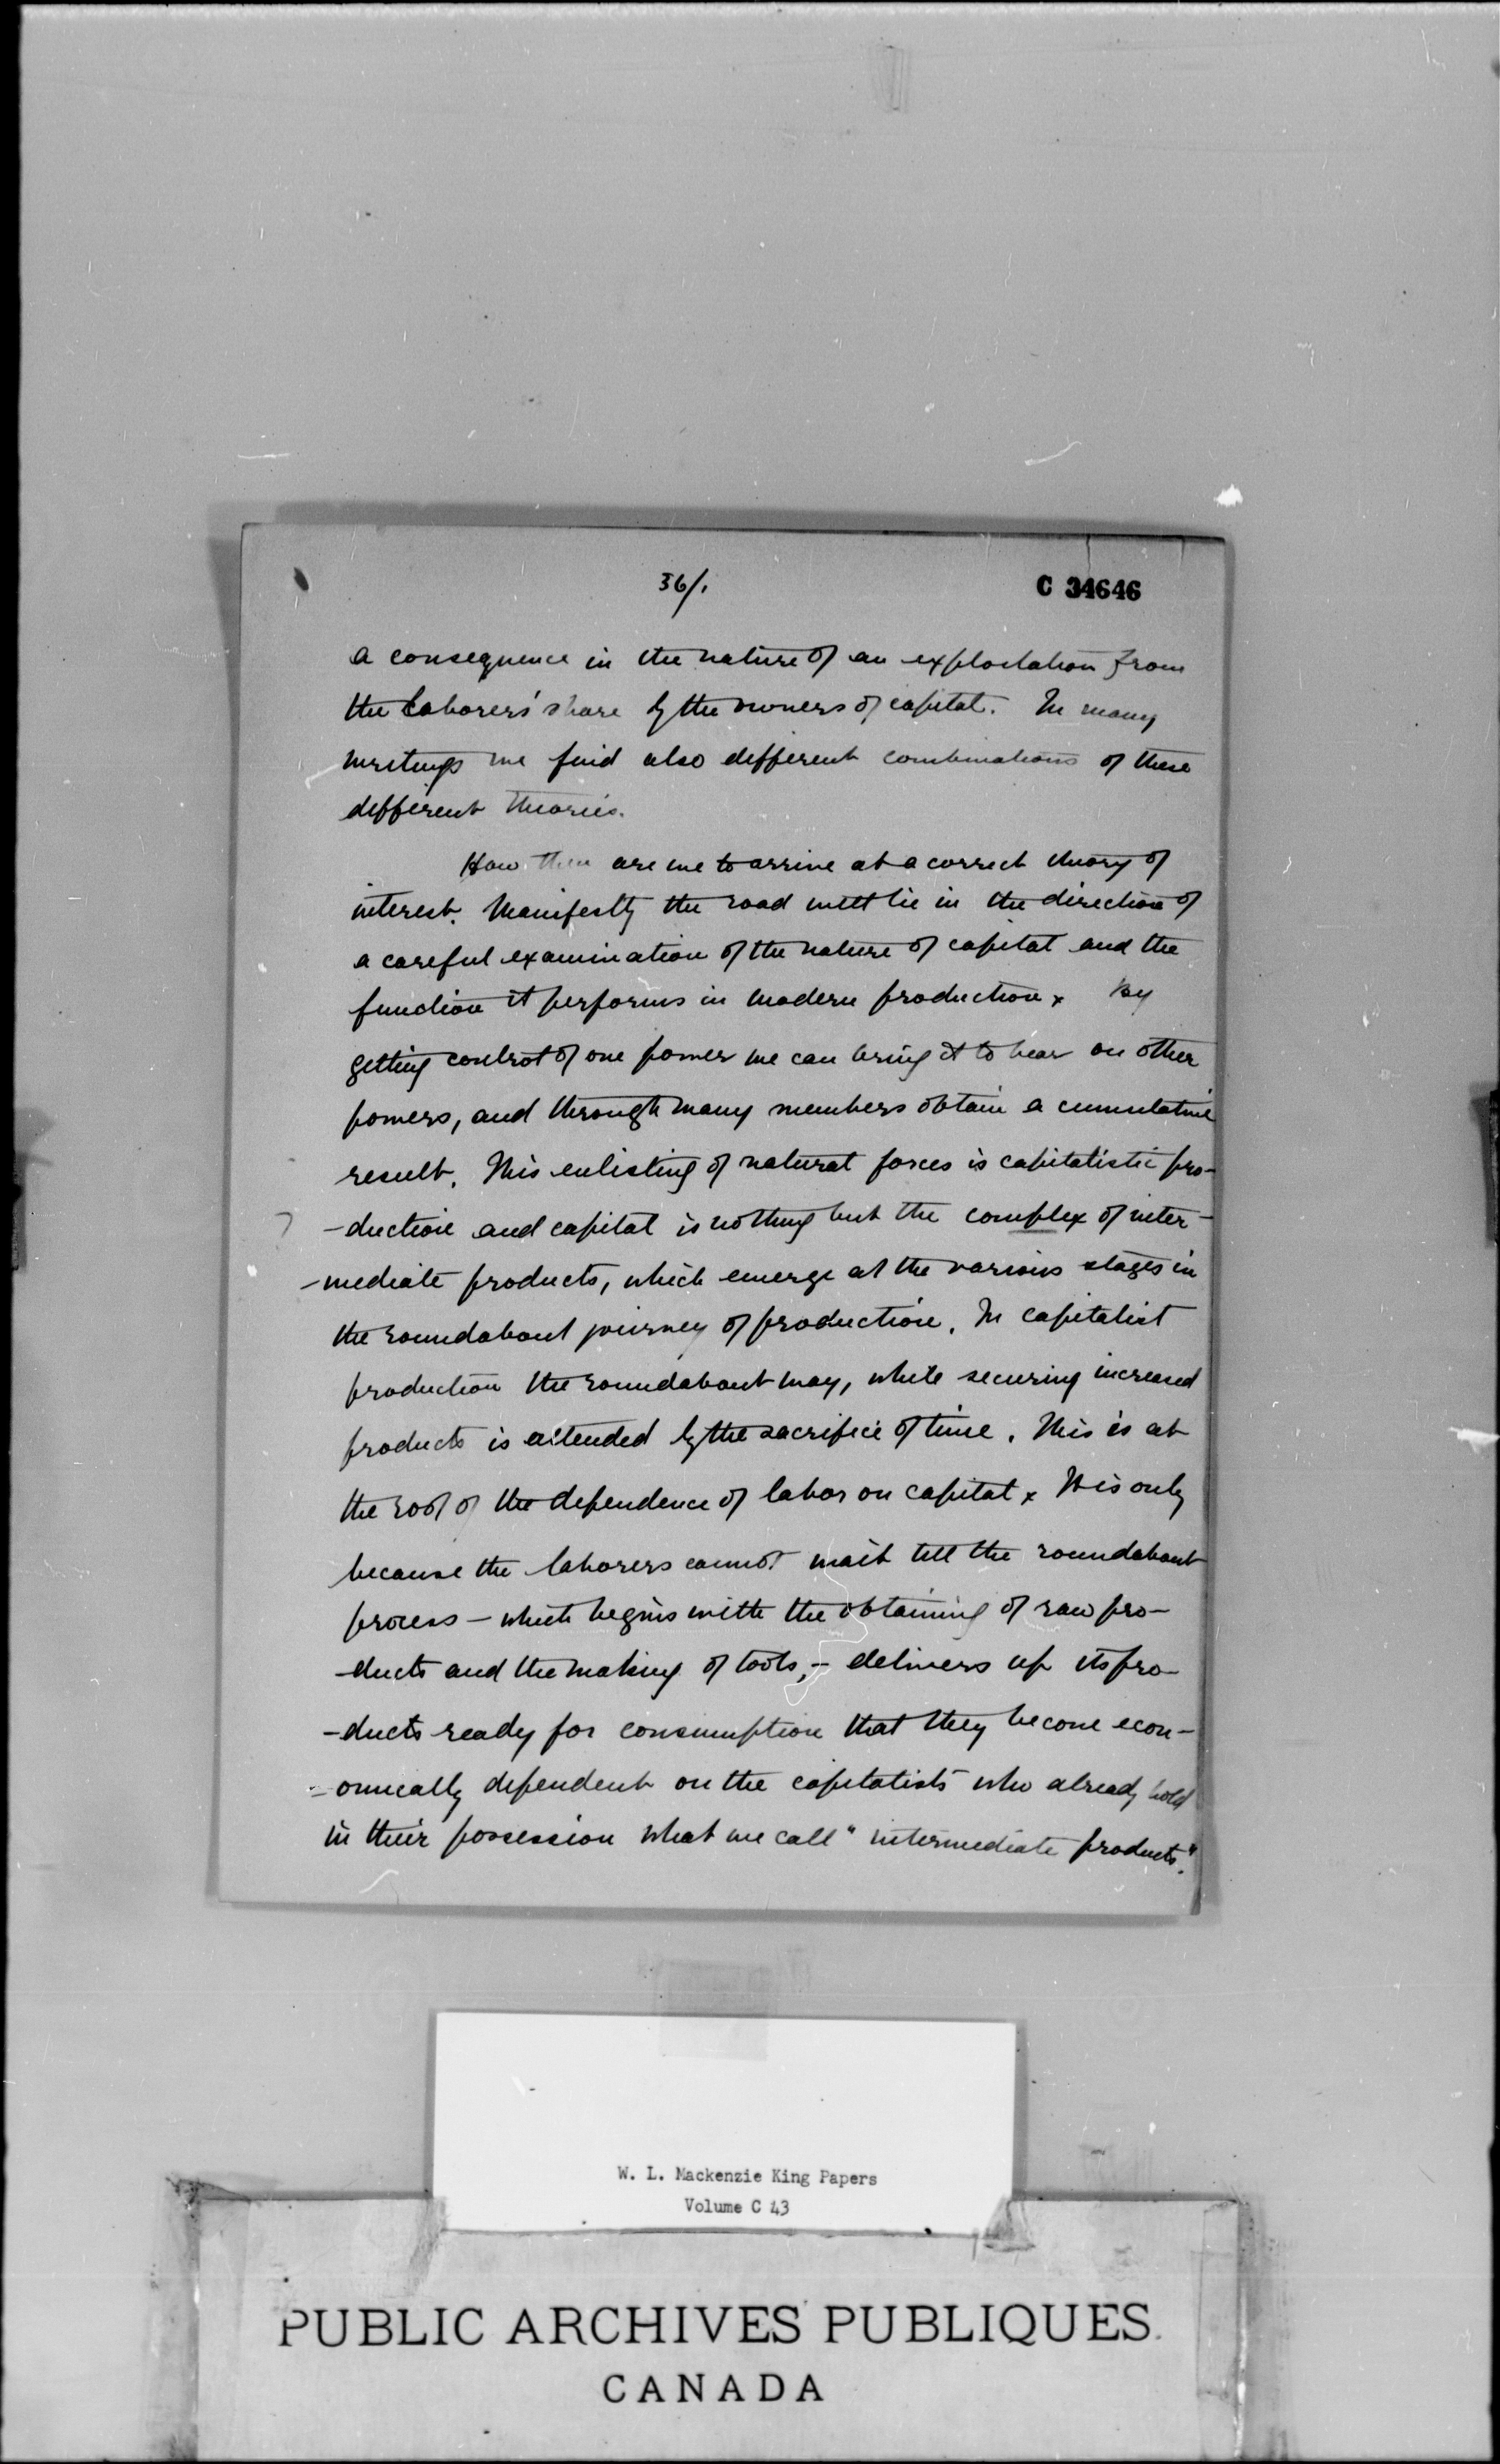 36/1
C 34646
a consequence in the nature of an exploitation from
the laborers' share by the owners of capital. In many
writings we find also different combinations of these
different theories.
How then are we to arrive at a correct theory of
interest. Manifestly the road will lie in the direction of
a careful examination of the nature of capital and the
function it performs in modern production x By
getting control of one power we can bring it to bear on other
powers, and through many members obtain a cumulative
result. This enlisting of natural forces is capitalistic pro-
-duction and capital is nothing but the complex of inter-
-mediate products, which emerge at the various stages in
the roundabout journey of production. In capitalist
production the roundabout way, while securing increased
products is attended by the sacrifice of time. This is at
the root of the dependence of labor on capital x It is only
because the laborers cannot wait till the roundabout
process - which begins with the obtaining of raw pro-
-ducts and the making of tools, - delivers up its pro-
-ducts ready for consumption that they become econ-
-omically dependent on the capitalists who already hold
in their possession what we call "intermediate products".
W. L. Mackenzie King Papers
Volume C 43
PUBLIC ARCHIVES PUBLIQUES
CANADA